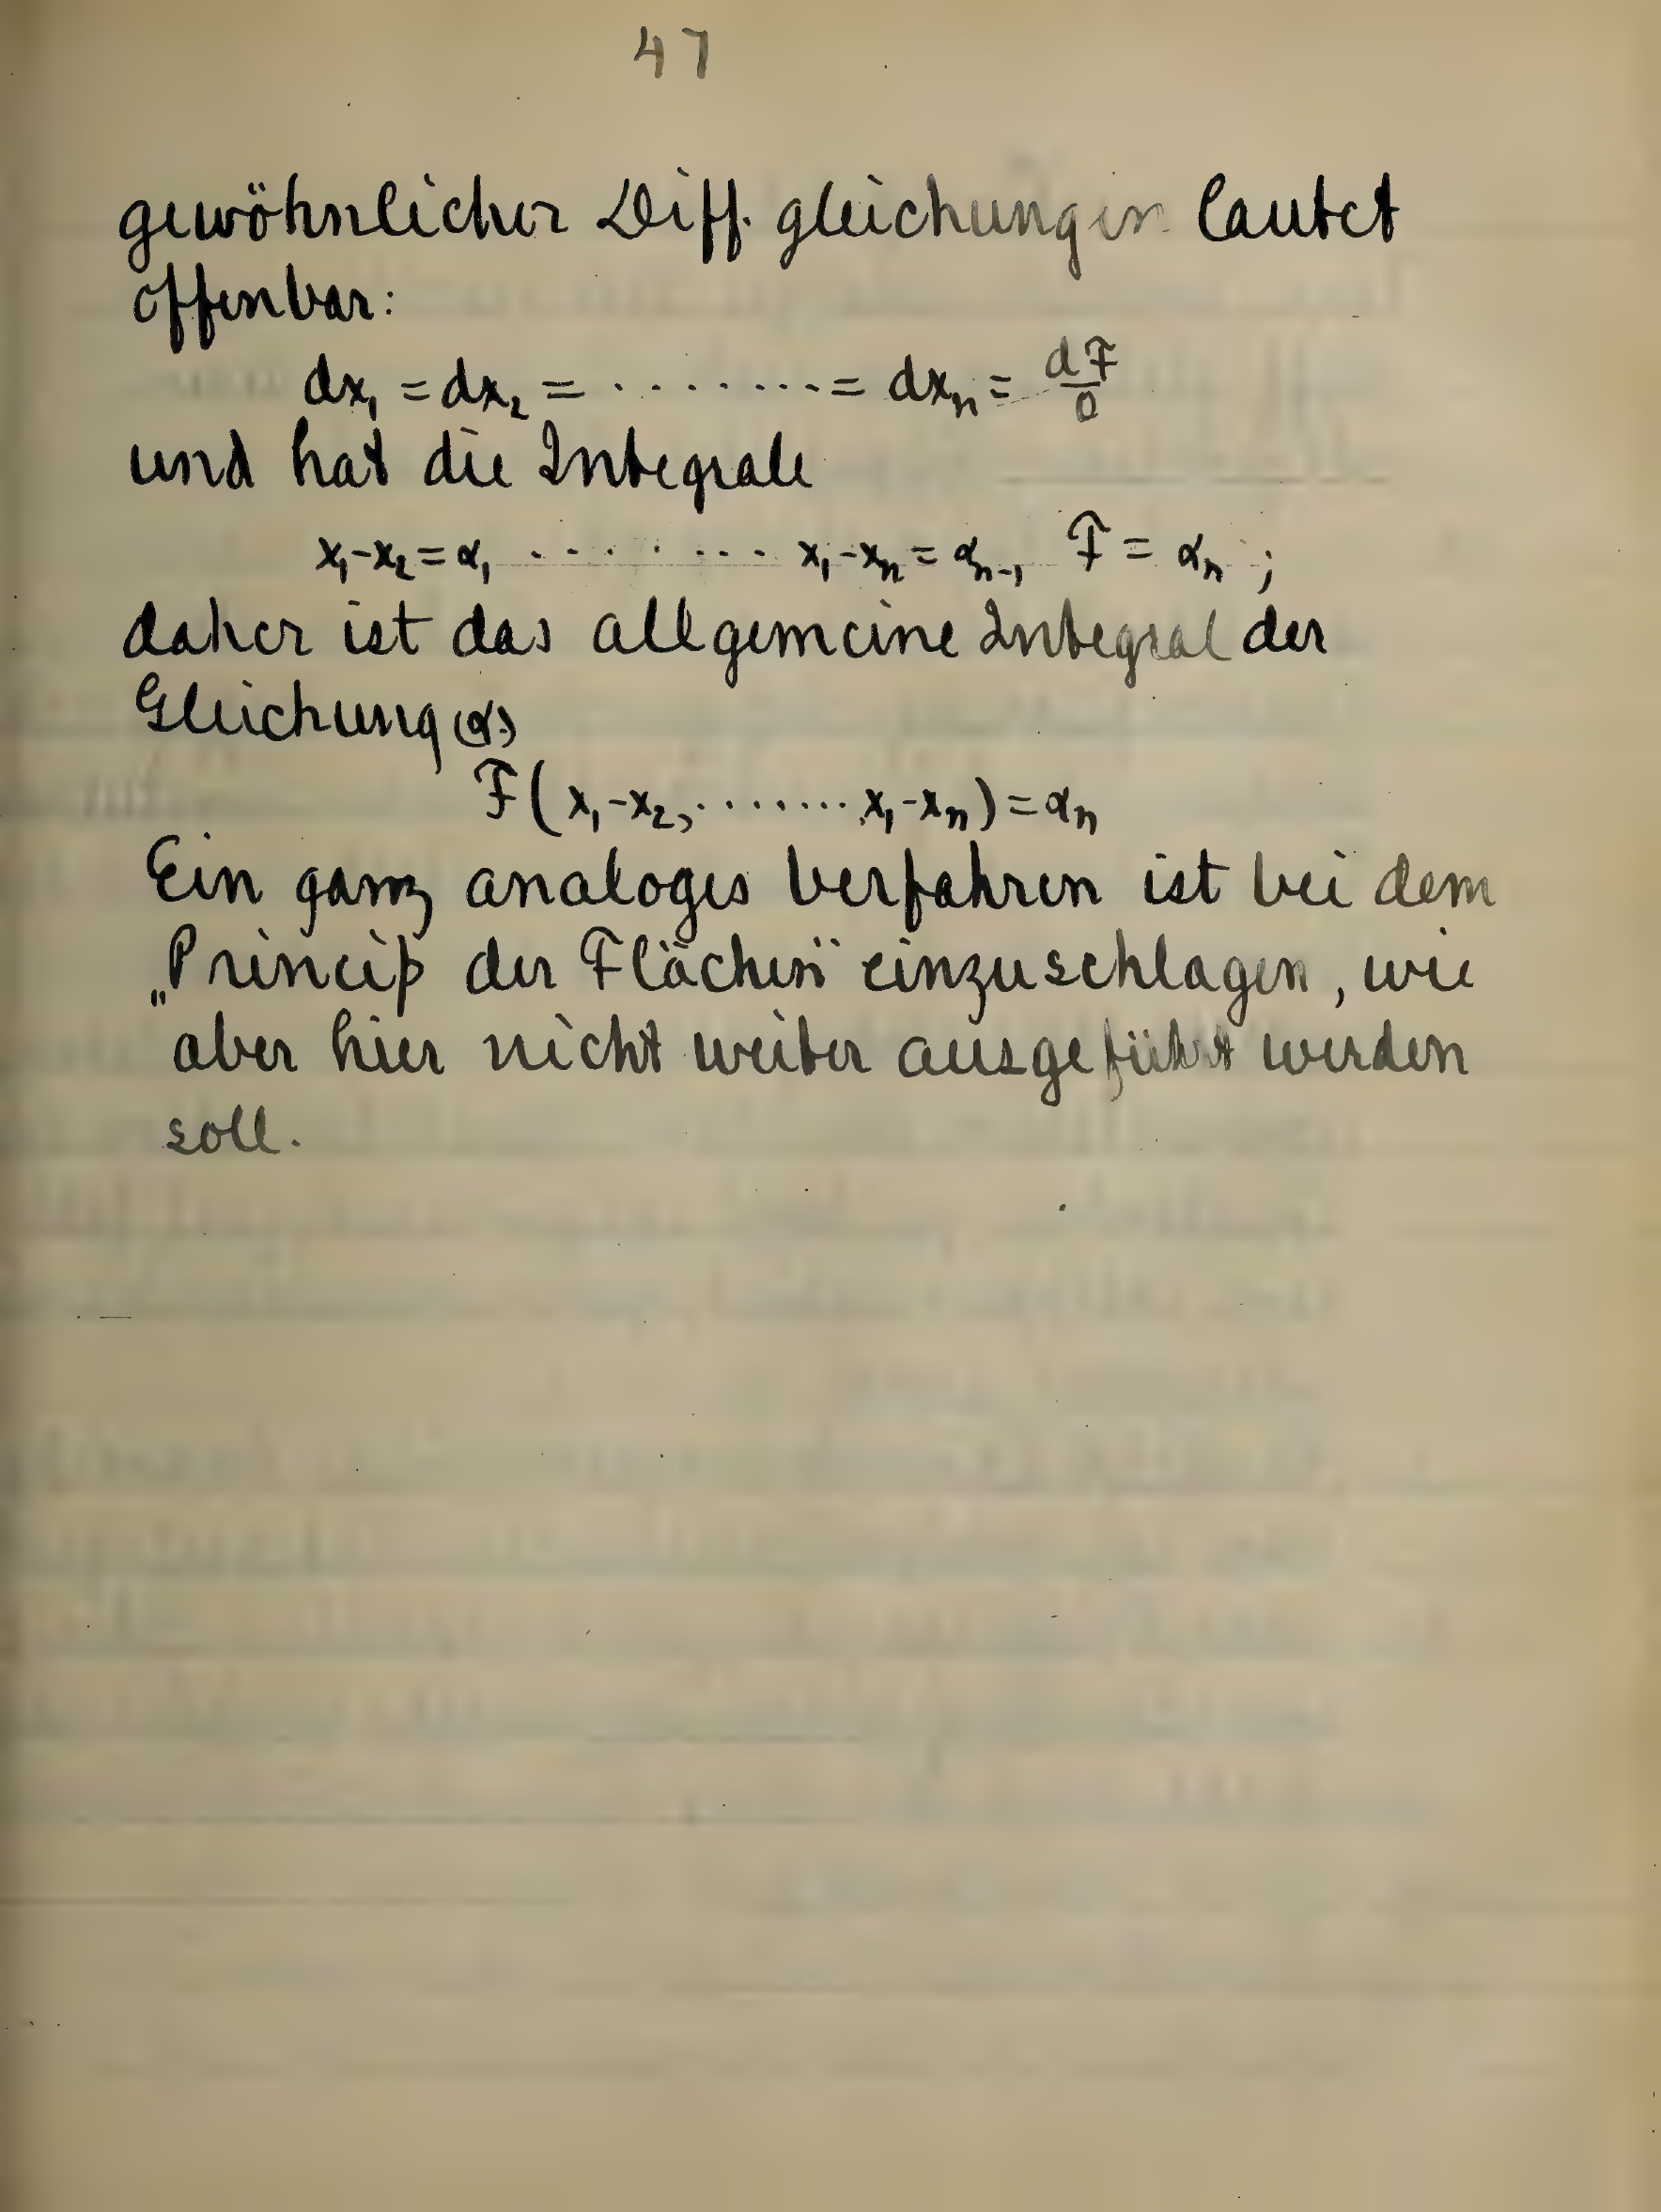 47
gewöhnlicher Diff. gleichungen lautet
offenbar:
dx₁ = dx₂ = ········· = dxₙ = dF/0
und hat die Integrale
x₁-x₂ = α₁ ········· x₁-xₙ = αₙ₋₁ F = αₙ ;
daher ist das allgemeine Integral der
Gleichung (α)
F(x₁-x₂, ······· x₁-xₙ) = αₙ
Ein ganz analoges Verfahren ist bei dem
„Princip der Flächen" einzuschlagen, wie
aber hier nicht weiter ausgeführt werden
soll.